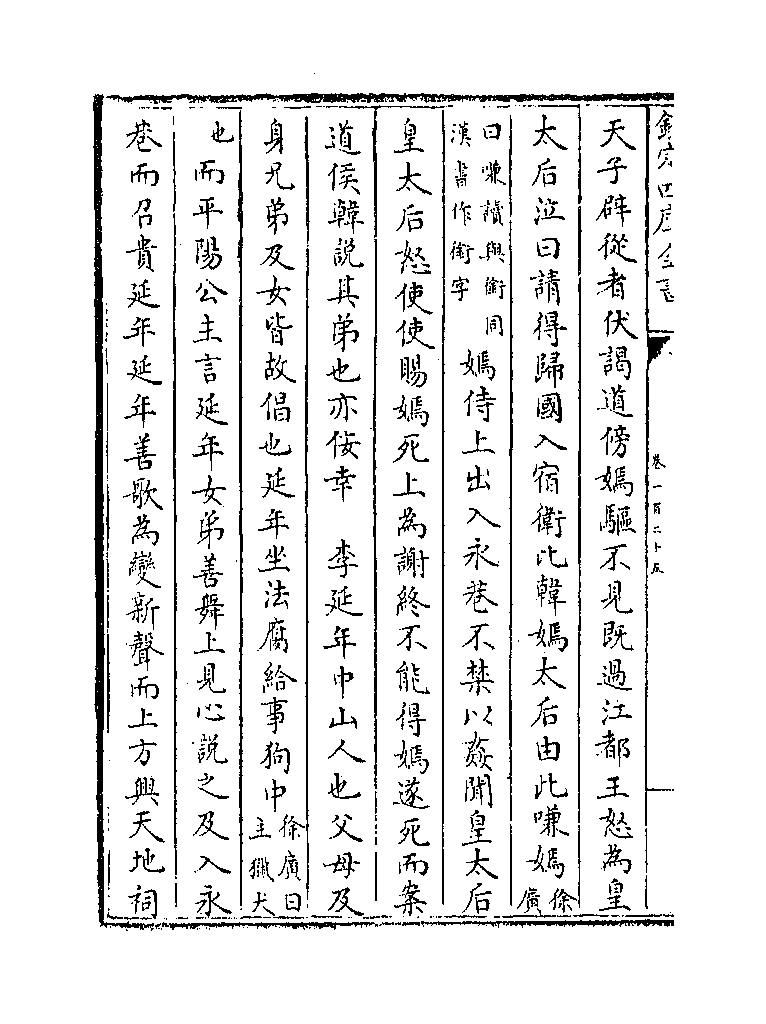 欽定四庫全書
卷一百二十五
天子辟從者伏謁道傍嫣驅不見既過江都王怒為皇
太后泣曰請得歸國入宿衛比韓嫣太后由此嗛嫣徐廣
曰嗛讀與銜同漢書作銜字嫣侍上出入永巷不禁以姦聞皇太后
皇太后怒使使賜嫣死上為謝終不能得嫣遂死而案
道侯韓說其弟也亦佞幸 李延年中山人也父母及
身兄弟及女皆故倡也延年坐法腐給事狗中徐廣曰主獵犬
也而平陽公主言延年女弟善舞上見心說之及入永
巷而召貴延年延年善歌為變新聲而上方興天地祠